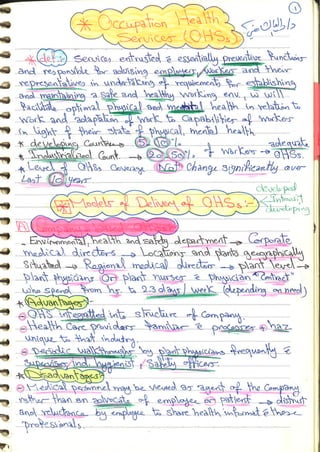 1
* Occupation Health
Services (OHSs)
* def: Services entrusted & essentially preventive functions
and responsible for advising employers, workers and their
representatives in undertaking of requirements for establishing
and maintaining a safe and healthy working env. w will
facilitate optimal physical and mental health in relation to
work and adaptation of work to capabilities of workers
in light of their state of physical, mental health
* developing Countries → 5-10%
* Industrialized Count. → 20-50% of workers → adequate OHSs.
* Level of OHSs Coverage Not Change Significantly over
Last 10 years
developed
developing
Models of Delivery of OHSs :-
A
- Environmental, health and safety department → Corporate
medical directors → Locations and plants geographically
situated → Regional medical director → plant level →
plant physicians or plant nurses & physician "Contract"
who spend from hrs to 2-3 days / week (depending on need)
* Advantages
- OHS integrated into structure of Company.
- Health Care providers familiar & processes + haz.
unique to that industry.
- Periodic walkthroughs by plant physicians frequently &
Supervisor, Ind. hygienist, Safety officers.
* Disadvantages
- Medical personnel may be viewed as agent of the Company
rather than an advocate of employee or patient → distrust
and reluctance by employee to share health informat. & those
professionals.